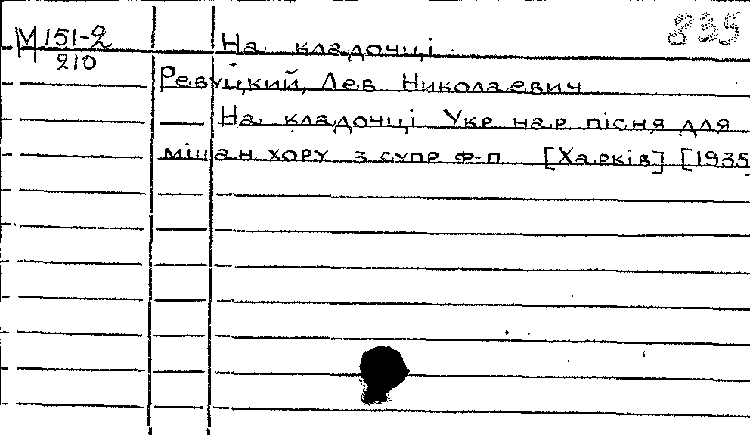 М 151-2 На кладочці 835
210
Ревуцкий, Лев Николаевич
На кладочці Укр нар пісня для
мішан хору з супр ф-п [Харків] [1935]